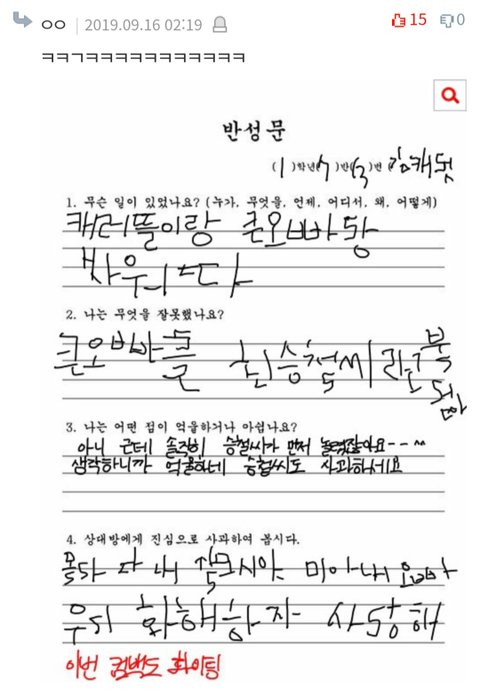 ㅇㅇ 2019.09.16 02:19
ㅋㅋㄱㅋㅋㅋㅋㅋㅋㅋㅋㅋㅋㅋ
15 0
반성문
(1)학년(7)반(3)번 김캐럿
1. 무슨 일이 있었나요? (누가, 무엇을, 언제, 어디서, 왜, 어떻게)
캐러뜰이랑 큰오빠랑
싸우ㅓㅆ다
2. 나는 무엇을 잘못했나요?
큰오빠를 최승철씨라고 불
러따
3. 나는 어떤 점이 억울하거나 아쉽나요?
아니 근데 솔직히 승철씨가 먼저 놀렸잖아요--^^
생각하니까 억울하네 승철씨도 사과하세요
4. 상대방에게 진심으로 사과하여 봅시다.
몰라 다 내 잘모시야 미아내 오빠
우리 화해하자 사랑해
이번 컴백도 화이팅